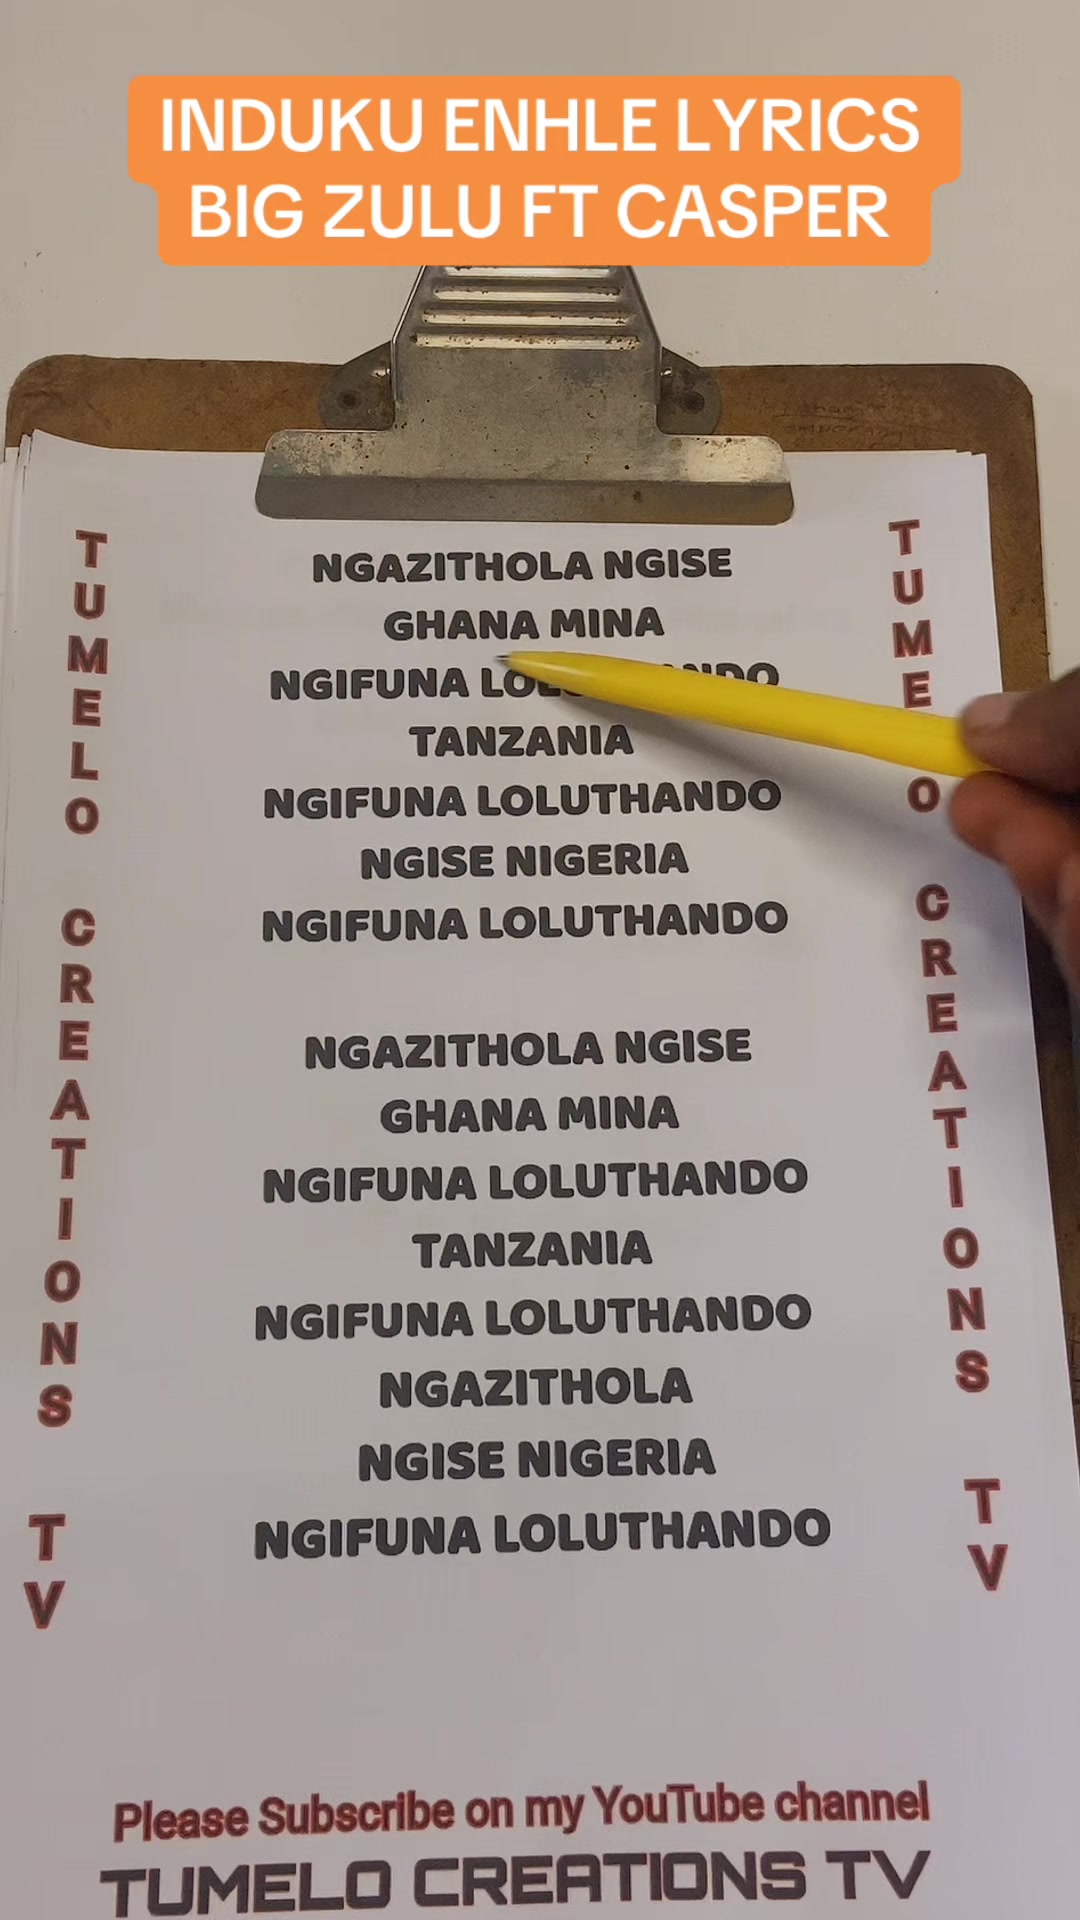 INDUKU ENHLE LYRICS
BIG ZULU FT CASPER
NGAZITHOLA NGISE
GHANA MINA
NGIFUNA
TANZANIA
NGIFUNA LOLUTHANDO
NGISE NIGERIA
NGIFUNA LOLUTHANDO
NGAZITHOLA NGISE
GHANA MINA
NGIFUNA LOLUTHANDO
TANZANIA
NGIFUNA LOLUTHANDO
NGAZITHOLA
NGISE NIGERIA
NGIFUNA LOLUTHANDO
TUMELO CREATIONS TV
TUMELO CREATIONS TV
Please Subscribe on my YouTube channel
TUMELO CREATIONS TV